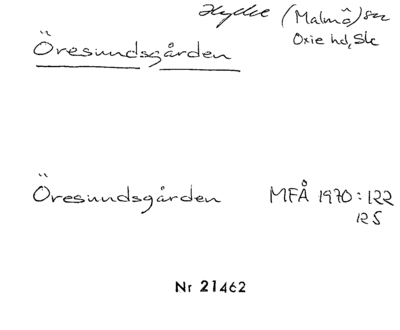 Hyllie (Malmö) sn
Oxie hd, Sk
Öresundsgården
Öresundsgården MFÅ 1970:122
125
Nr 21462